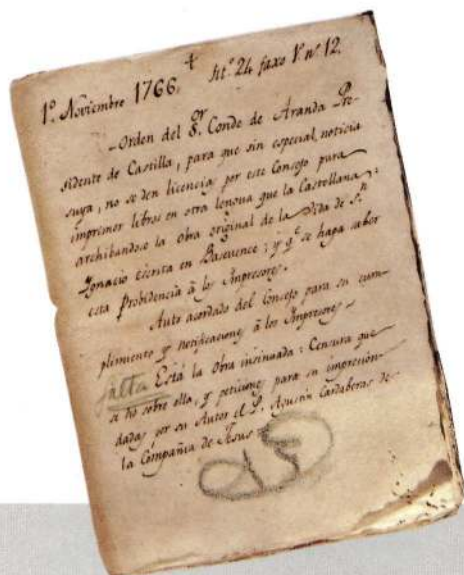 1º. Noviembre 1766.
tit.º 24 faxo 1º nº. 12.
Orden del S.or Conde de Aranda Pre-
sidente de Castilla, para que sin especial noticia
suya, no se den licencias por este Consejo para
imprimir libros en otra lengua que la Castellana;
archibandose la obra original de la Vida de S.n
Ignacio escrita en Bascuence; y q.e se haga saber
esta Probidencia â los Impresores.
Auto acordado del Consejo para su cum-
plimiento y notificaciones â los Impresores
falta Está la Obra insinuada: Censura que
se dio sobre ella, y peticiones para su impresion
dadas por su Autor el P. Agustin Cardaberas de
la Compañia de Jesus